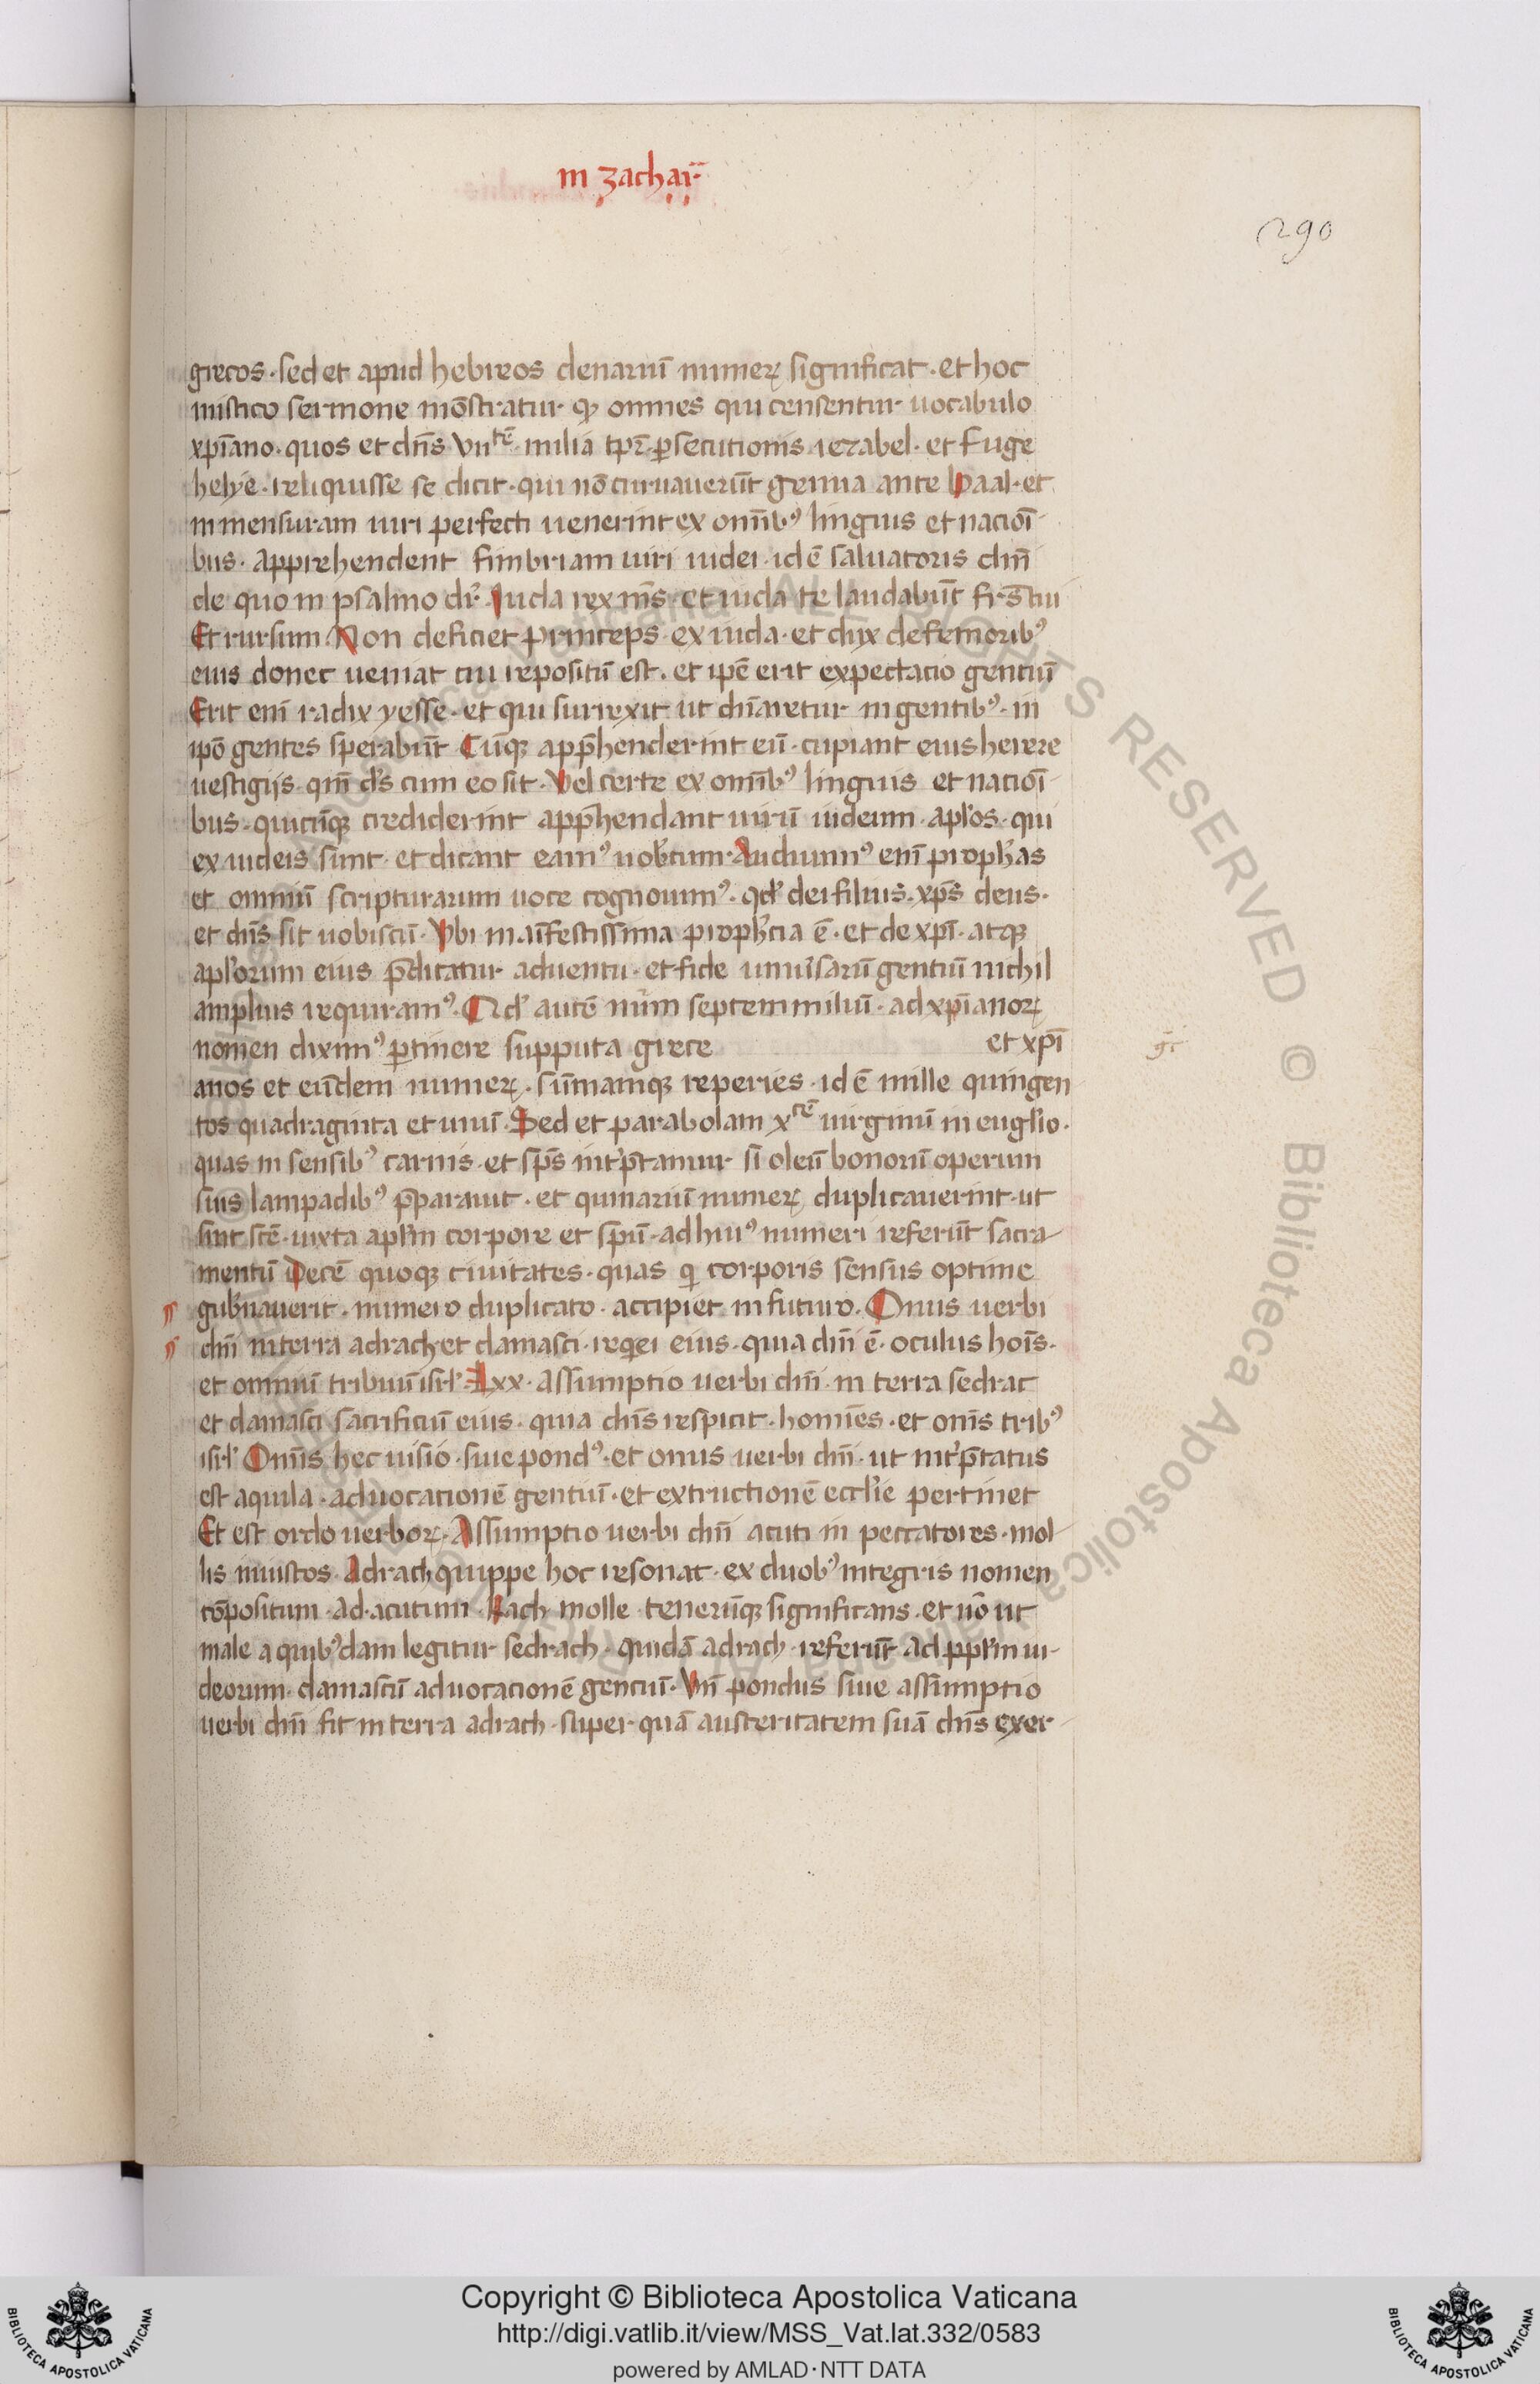 in zachai
290
grecos · sed et apud hebreos denariū numeꝝ significat · et hoc
mistico sermone mōstratur ꝙ omnes qui censentur uocabulo
xp̄iano · quos et dn̄s VIItē · milia tp̄r ꝑsecutionis iezabel · et fuge
helye · reliquisse se dicit · qui nō curuauerūt genua ante baal · et
in mensuram uiri perfecti uenerint ex omībꝰ linguis et nacioī
bus · apprehendent fimbriam uiri iudei · id ē saluatoris dn̄i
de quo in psalmo dr̄ · Iuda rex m̄s · et iuda te laudabūt fr̄s tui
Et rursum Non deficiet princeps ex iuda · et dux de femoribꝰ
eius donec ueniat cui repositū est · et ipē erit expectacio gentiū
Erit enī radix yesse · et qui surrexit ut dn̄aretur in gentibꝰ · in
ipō gentes sperabūt Cūqꝫ app̄henderint eū · cupiant eius herere
uestigijs · qm̄ ds̄ cum eo sit · Vel certe ex omībꝰ linguis et nacioī
bus · quicūqꝫ crediderint app̄hendant uirū iudeum · apl̄os · qui
ex iudeis sunt · et dicant eamꝰ uob̄cum · Audiuimꝰ enī proph̄as
et omniū scripturarum uoce cognouimꝰ · qd̄ dei filius · xp̄s deus ·
et dn̄s sit uobiscū · Vbi manīfestissima proph̄cia ē · et de xp̄i · atqꝫ
apl̄orum eius p̄dicatur aduentu · et fide uniūsarū gentiū nichil
amplius requiramꝰ · Qd̄ autē nūm septem miliū · ad xp̄ianoꝝ
nomen diximꝰ ꝑtinere supputa grece et xp̄i
gr̄
anos et eūdem numeꝝ · sūmamqꝫ reperies · id ē mille quingen
tos quadraginta et unū · Sed et parabolam xcē uirginū in eugl̄io ·
quas in sensibꝰ carnis · et sp̄s int̄p̄tamur si oleū bonorū operum
suis lampadibꝰ p̄parauit · et quinariū numeꝝ duplicauerint · ut
sint sc̄e · iuxta apl̄m corpore et sp̄u · ad huiꝰ numeri referūt sacra
mentū Decē quoqꝫ ciuitates · quas qi corporis sensus optime
gub̄nauerit · numero duplicato · accipiet in futuro · Onus uerbi
dn̄i in terra adrach et damasci · reqei eius · quia dn̄i ē · oculus hoīs ·
et omniū tribuū isrl̄ · Lxx · Assumptio uerbi dn̄i · in terra sedrac
et damasci sacrificiū eius · quia dn̄s respicit · homīes · et om̄s tribꝰ
isrl̄ Om̄is hec uisio · siue pondꝰ · et onus uerbi dn̄i · ut int̄p̄tatus
est aquila · ad uocacionē gentiū · et extructionē eccl̄ie pertinet
Et est ordo uerboꝝ · Assumptio uerbi dn̄i acuti in peccatores · mol
lis in iustos · Adrach quippe hoc resonat · ex duobꝰ integris nomen
cōpositum · Ad · acutum · Rach molle tenerūqꝫ significans · et nō ut
male a quibꝰdam legitur sedrach · quidā adrach · referūt ad ppl̄m iu
deorum · damascū ad uocacionē gentiū · Vn̄ pondus siue assumptio
uerbi dn̄i fit in terra adrach · super quā austeritatem suā dn̄s exer
ALL RIGHTS RESERVED © Biblioteca Apostolica Vaticana
Copyright © Biblioteca Apostolica Vaticana
http://digi.vatlib.it/view/MSS_Vat.lat.332/0583
powered by AMLAD·NTT DATA
BIBLIOTECA APOSTOLICA VATICANA
BIBLIOTECA APOSTOLICA VATICANA